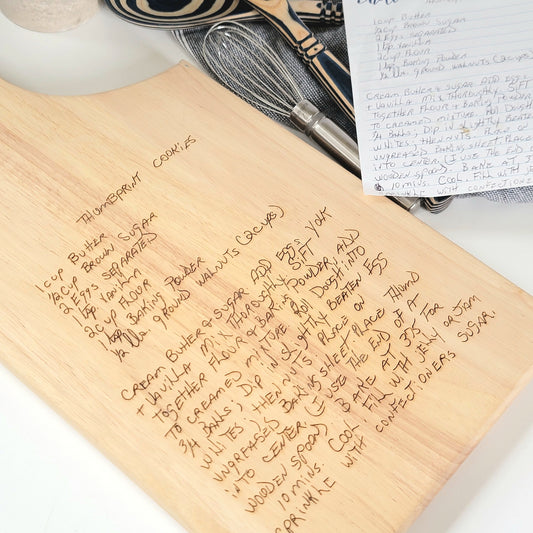 THUMBPRINT COOKIES
1 CUP BUTTER
1/2 CUP BROWN SUGAR
2 EGGS SEPARATED
1 tsp VANILLA
2 CUP FLOUR
1 tsp BAKING POWDER
1/2 lb. GROUND WALNUTS (2 CUPS)
CREAM BUTTER & SUGAR ADD EGGS YOLK
+ VANILLA MIX THOROUGHLY SIFT
TOGETHER FLOUR & BAKING POWDER, AND
TO CREAMED MIXTURE ROll DOUGH INTO
3/4 BAllS; DIP IN SLIGHTLY BEATEN EGG
WHITES, THEN NUTS PLACE ON
UNGREASED BAKING SHEET PLACE THUMB
INTO CENTER (I USE THE END OF A
WOODEN SPOON) BAKE AT 375 FOR
10 MINS. COOL FILL WITH JELLY OR JAM
SPRINKLE WITH CONFECTIONERS SUGAR.
1 CUP BUTTER
1/2 CUP BROWN SUGAR
2 EGGS, SEPARATED
1 tsp VANILLA
2 CUP FLOUR
1 tsp BAKING POWDER
1/2 lb. GROUND WALNUTS (2 CUPS)
CREAM BUTTER & SUGAR ADD EGGS
+ VANILLA MIX THOROUGHLY SIFT
TOGETHER FLOUR + BAKING POWDER
TO CREAMED MIXTURE ROll DOUGH
3/4 BAllS; DIP IN SLIGHTLY BEATEN
WHITES; THEN NUTS PLACE ON
UNGREASED BAKING SHEET PLACE
INTO CENTER (I USE THE END
WOODEN SPOON) BAKE AT 3
10 MINS. COOL FILL WITH
WITH CONFECTIONE